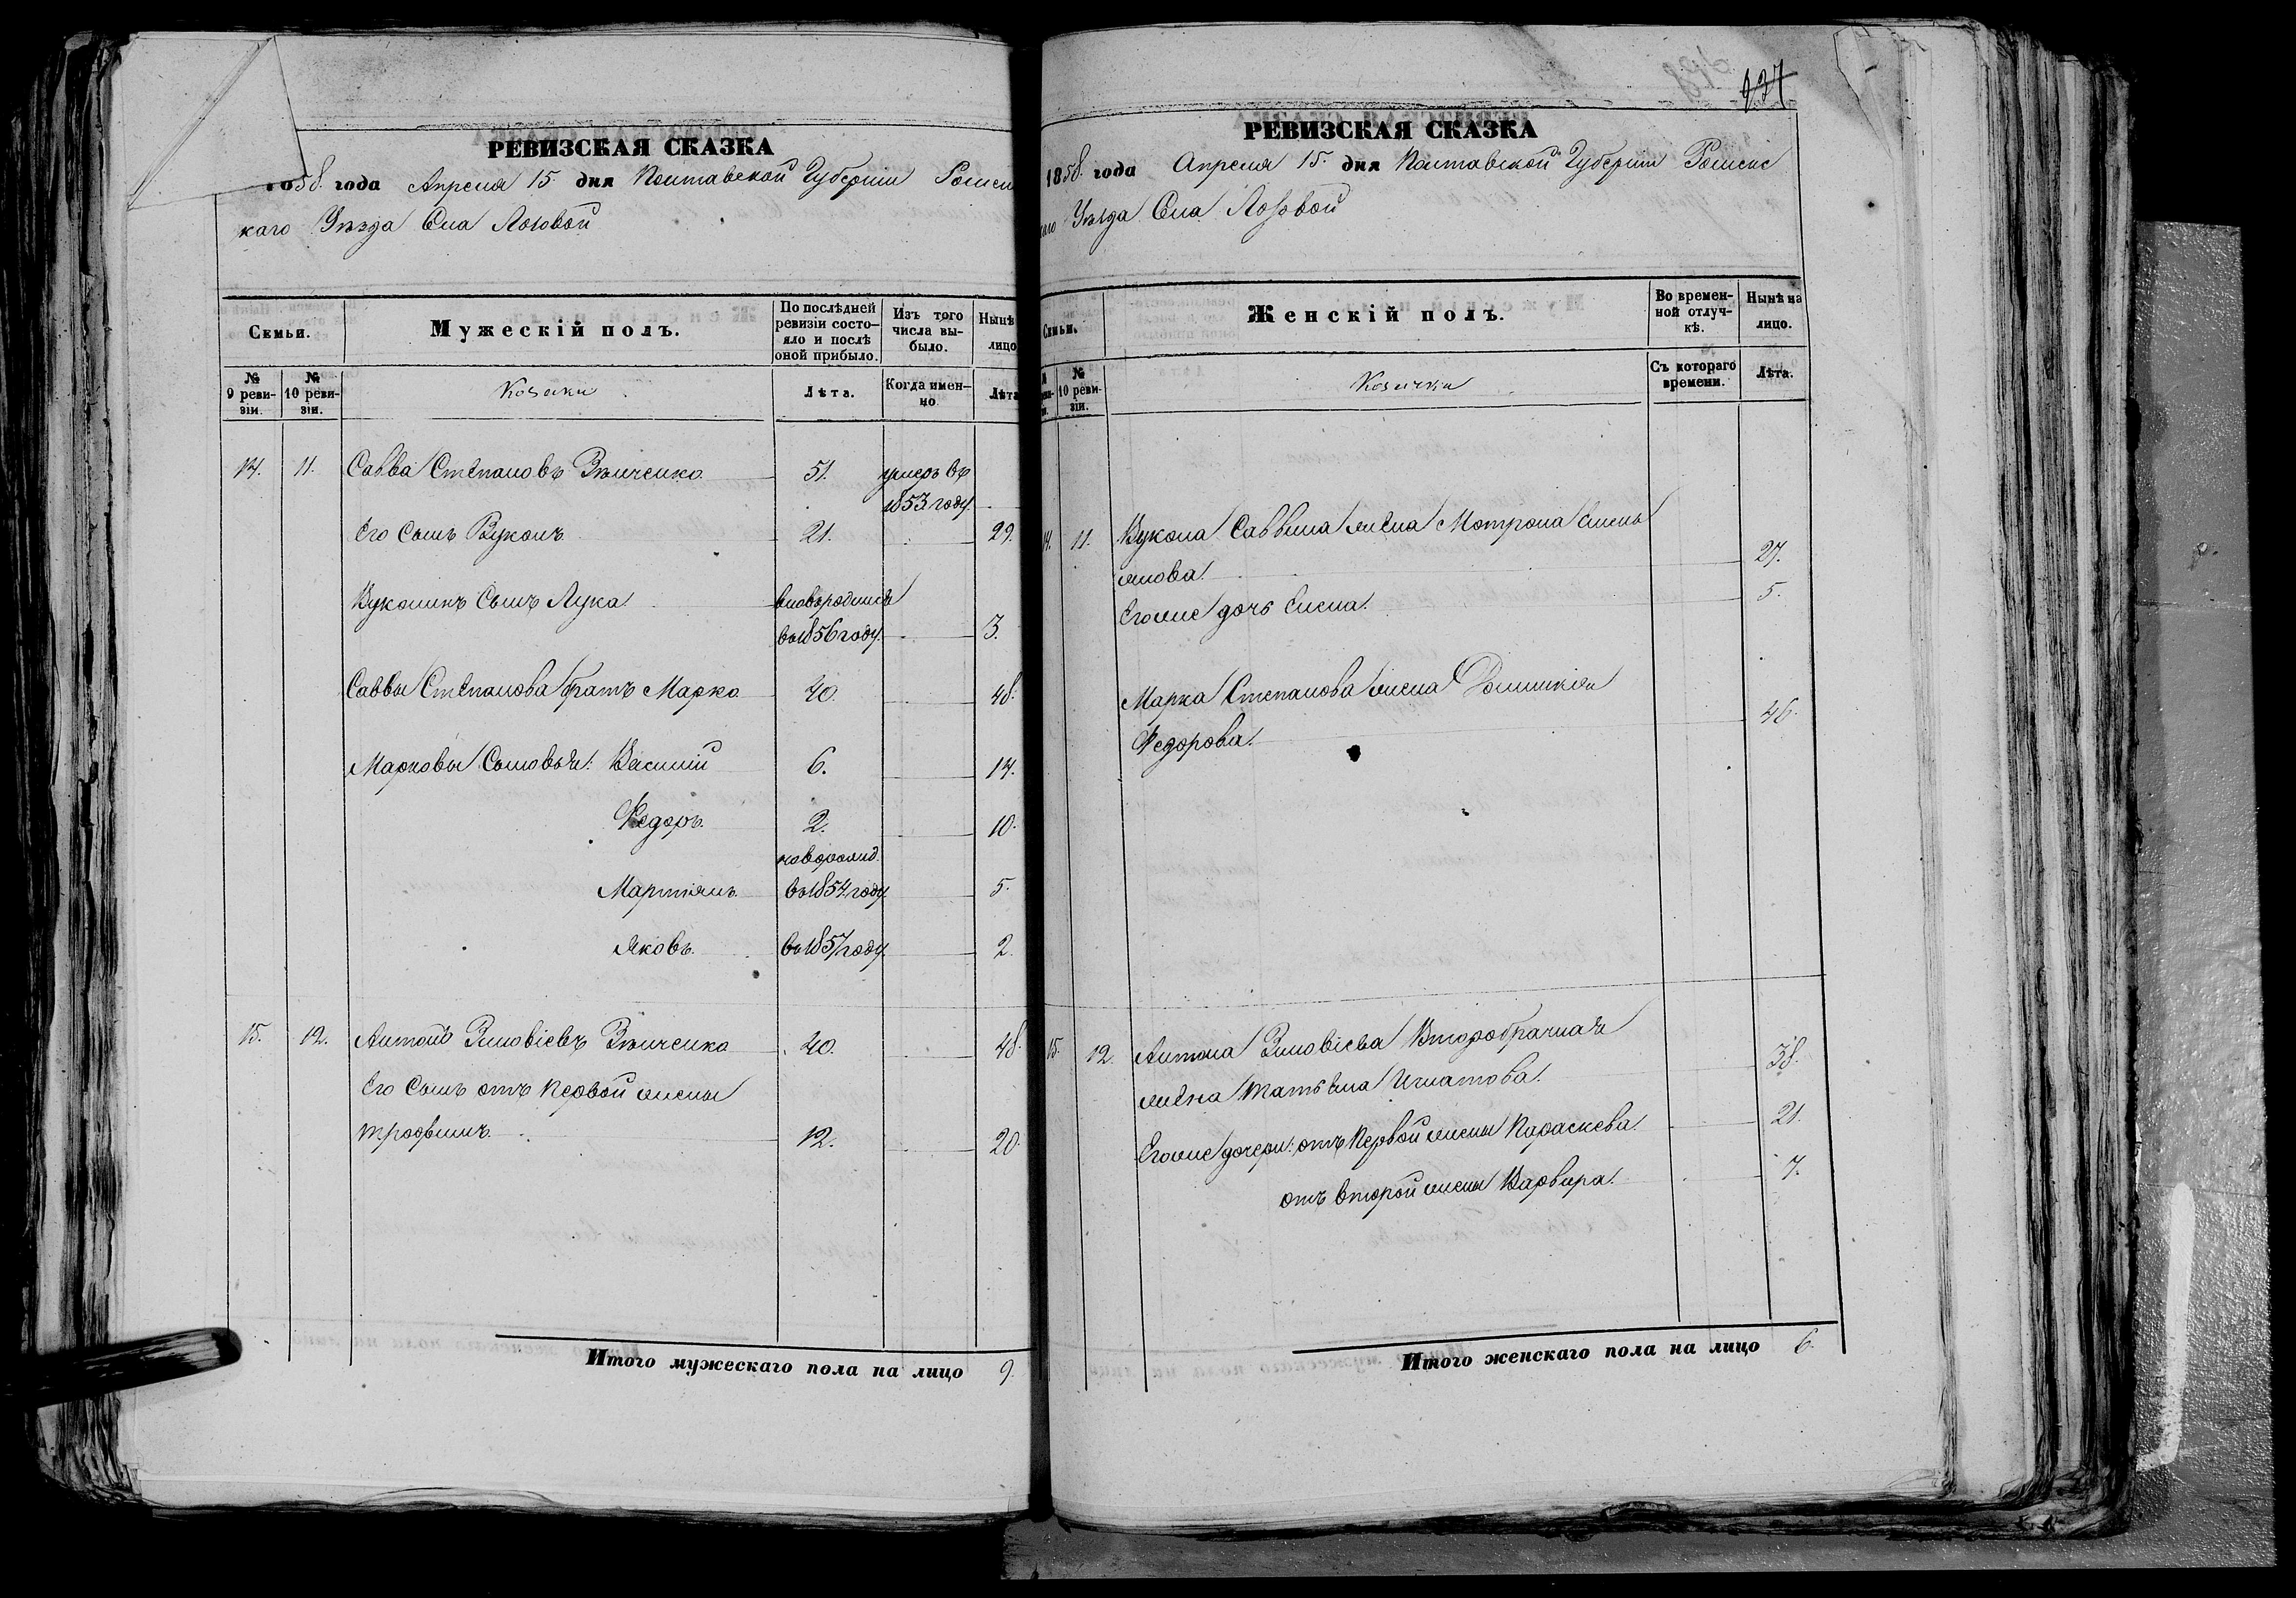 РЕВИЗСКАЯ СКАЗКА
1858. года Апреля 15. дня Полтавской Губерніи Ромен
каго Уѣзда Села Лозовой
Семьи.
Мужескій полъ.
По послѣдней
ревизіи состо–
яло и послѣ
оной прибыло.
Изъ того
числа вы–
было.
Нынѣ
лицо
№
9 реви–
зіи.
№
10 реви–
зіи.
Козаки
Лѣта.
Когда имен–
но
Лѣта
14. 11. Савва Степановъ Зѣнченко 51. умеръ въ
1853 году.
Его Сынъ Вуколъ 21. 29.
Вуколинъ Сынъ Лука вновьродился
въ 1856 году. 3.
Саввы Степанова братъ Марко 40. 48.
Марковы Сыновья: Василій 6. 14.
Федоръ 2. 10.
новорожд.
Мартинъ въ 1854 году 5.
Яковъ въ 1857 году. 2.
15. 12. Антонъ Зиновіевъ Зѣнченко 40. 48.
Его Сынъ отъ первой жены
Трофимъ 12. 20.
Итого мужескаго пола на лицо 9.
РЕВИЗСКАЯ СКАЗКА
1858. года Апреля 15. дня Полтавской Губерніи Роменс
каго Уѣзда Села Лозовой
Семьи.
Женскій полъ.
Во времен–
ной отлуч–
кѣ.
Нынѣ на
лицо.
№
10 реви–
зіи.
Козачки
Съ котораго
времени.
Лѣта.
14. 11. Вукола Саввина жена Мотрона Емель
янова. 27.
Егоже дочь Елена. 5.
Марка Степанова жена Домникія
Федорова. 46.
15. 12. Антона Зиновіева Второбрачная
жена Татьяна Игнатова. 38.
Егоже дочери: отъ Первой жены Параскева. 21.
отъ второй жены Варвара. 7.
Итого женскаго пола на лицо 6.